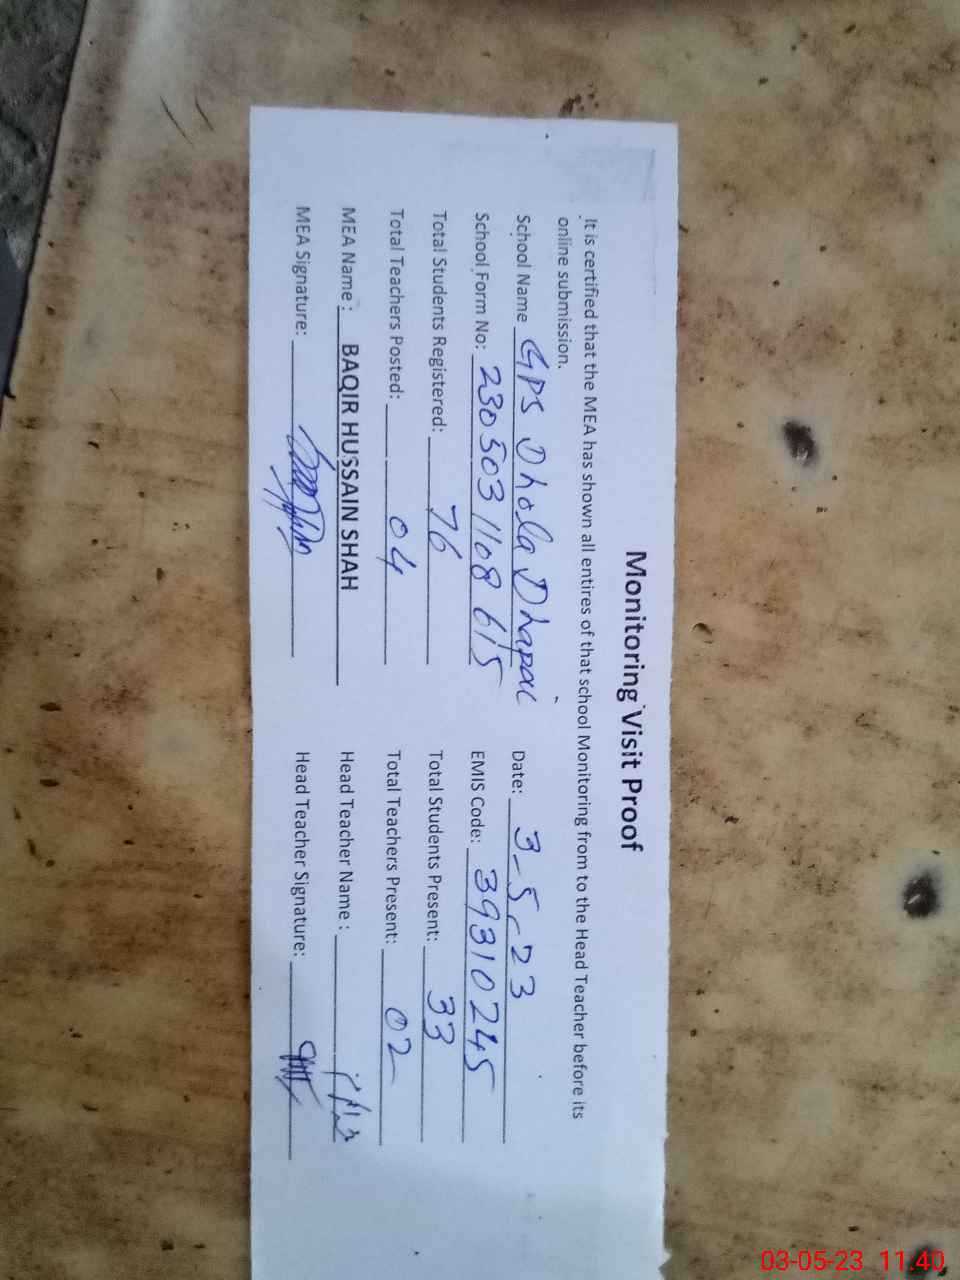 Monitoring Visit Proof
It is certified that the MEA has shown all entires of that school Monitoring from to the Head Teacher before its
online submission.
School Name GPS Dhola Dhapai Date: 3-5-23
School Form No: 2305031108615 EMIS Code: 39310245
Total Students Registered: 76 Total Students Present: 33
Total Teachers Posted: 04 Total Teachers Present: 02
MEA Name: BAQIR HUSSAIN SHAH Head Teacher Name:
MEA Signature: Head Teacher Signature:
03-05-23 11:40